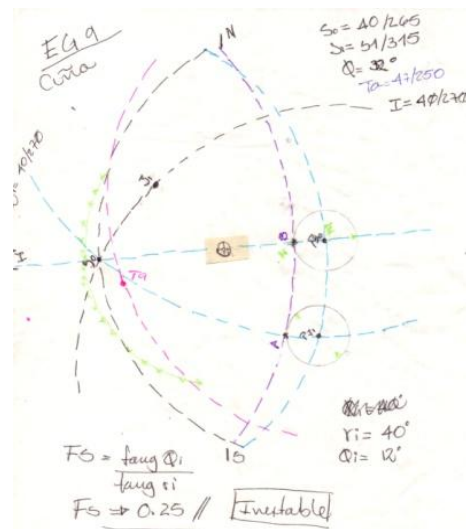 EG9
Cuña
N
So = 40/265
Si = 51/315
Q = 32°
Ta = 47/250
I = 40/270
40/270
I
Si
Ta
IS
ri = 40°
Qi = 12°
FS = tang Qi
tang ri
FS → 0.25 // Inestable